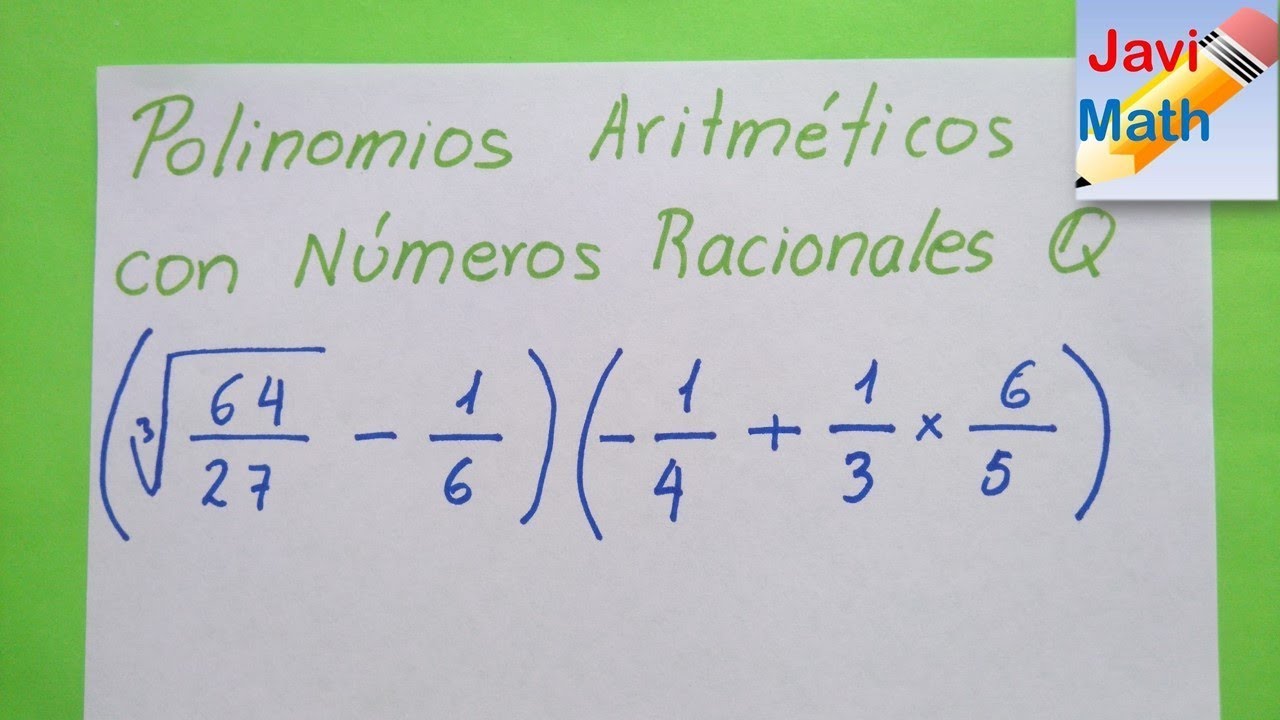 Javi
Math
Polinomios Aritméticos
con Números Racionales Q
(∛(64/27) - 1/6)(-1/4 + 1/3 × 6/5)